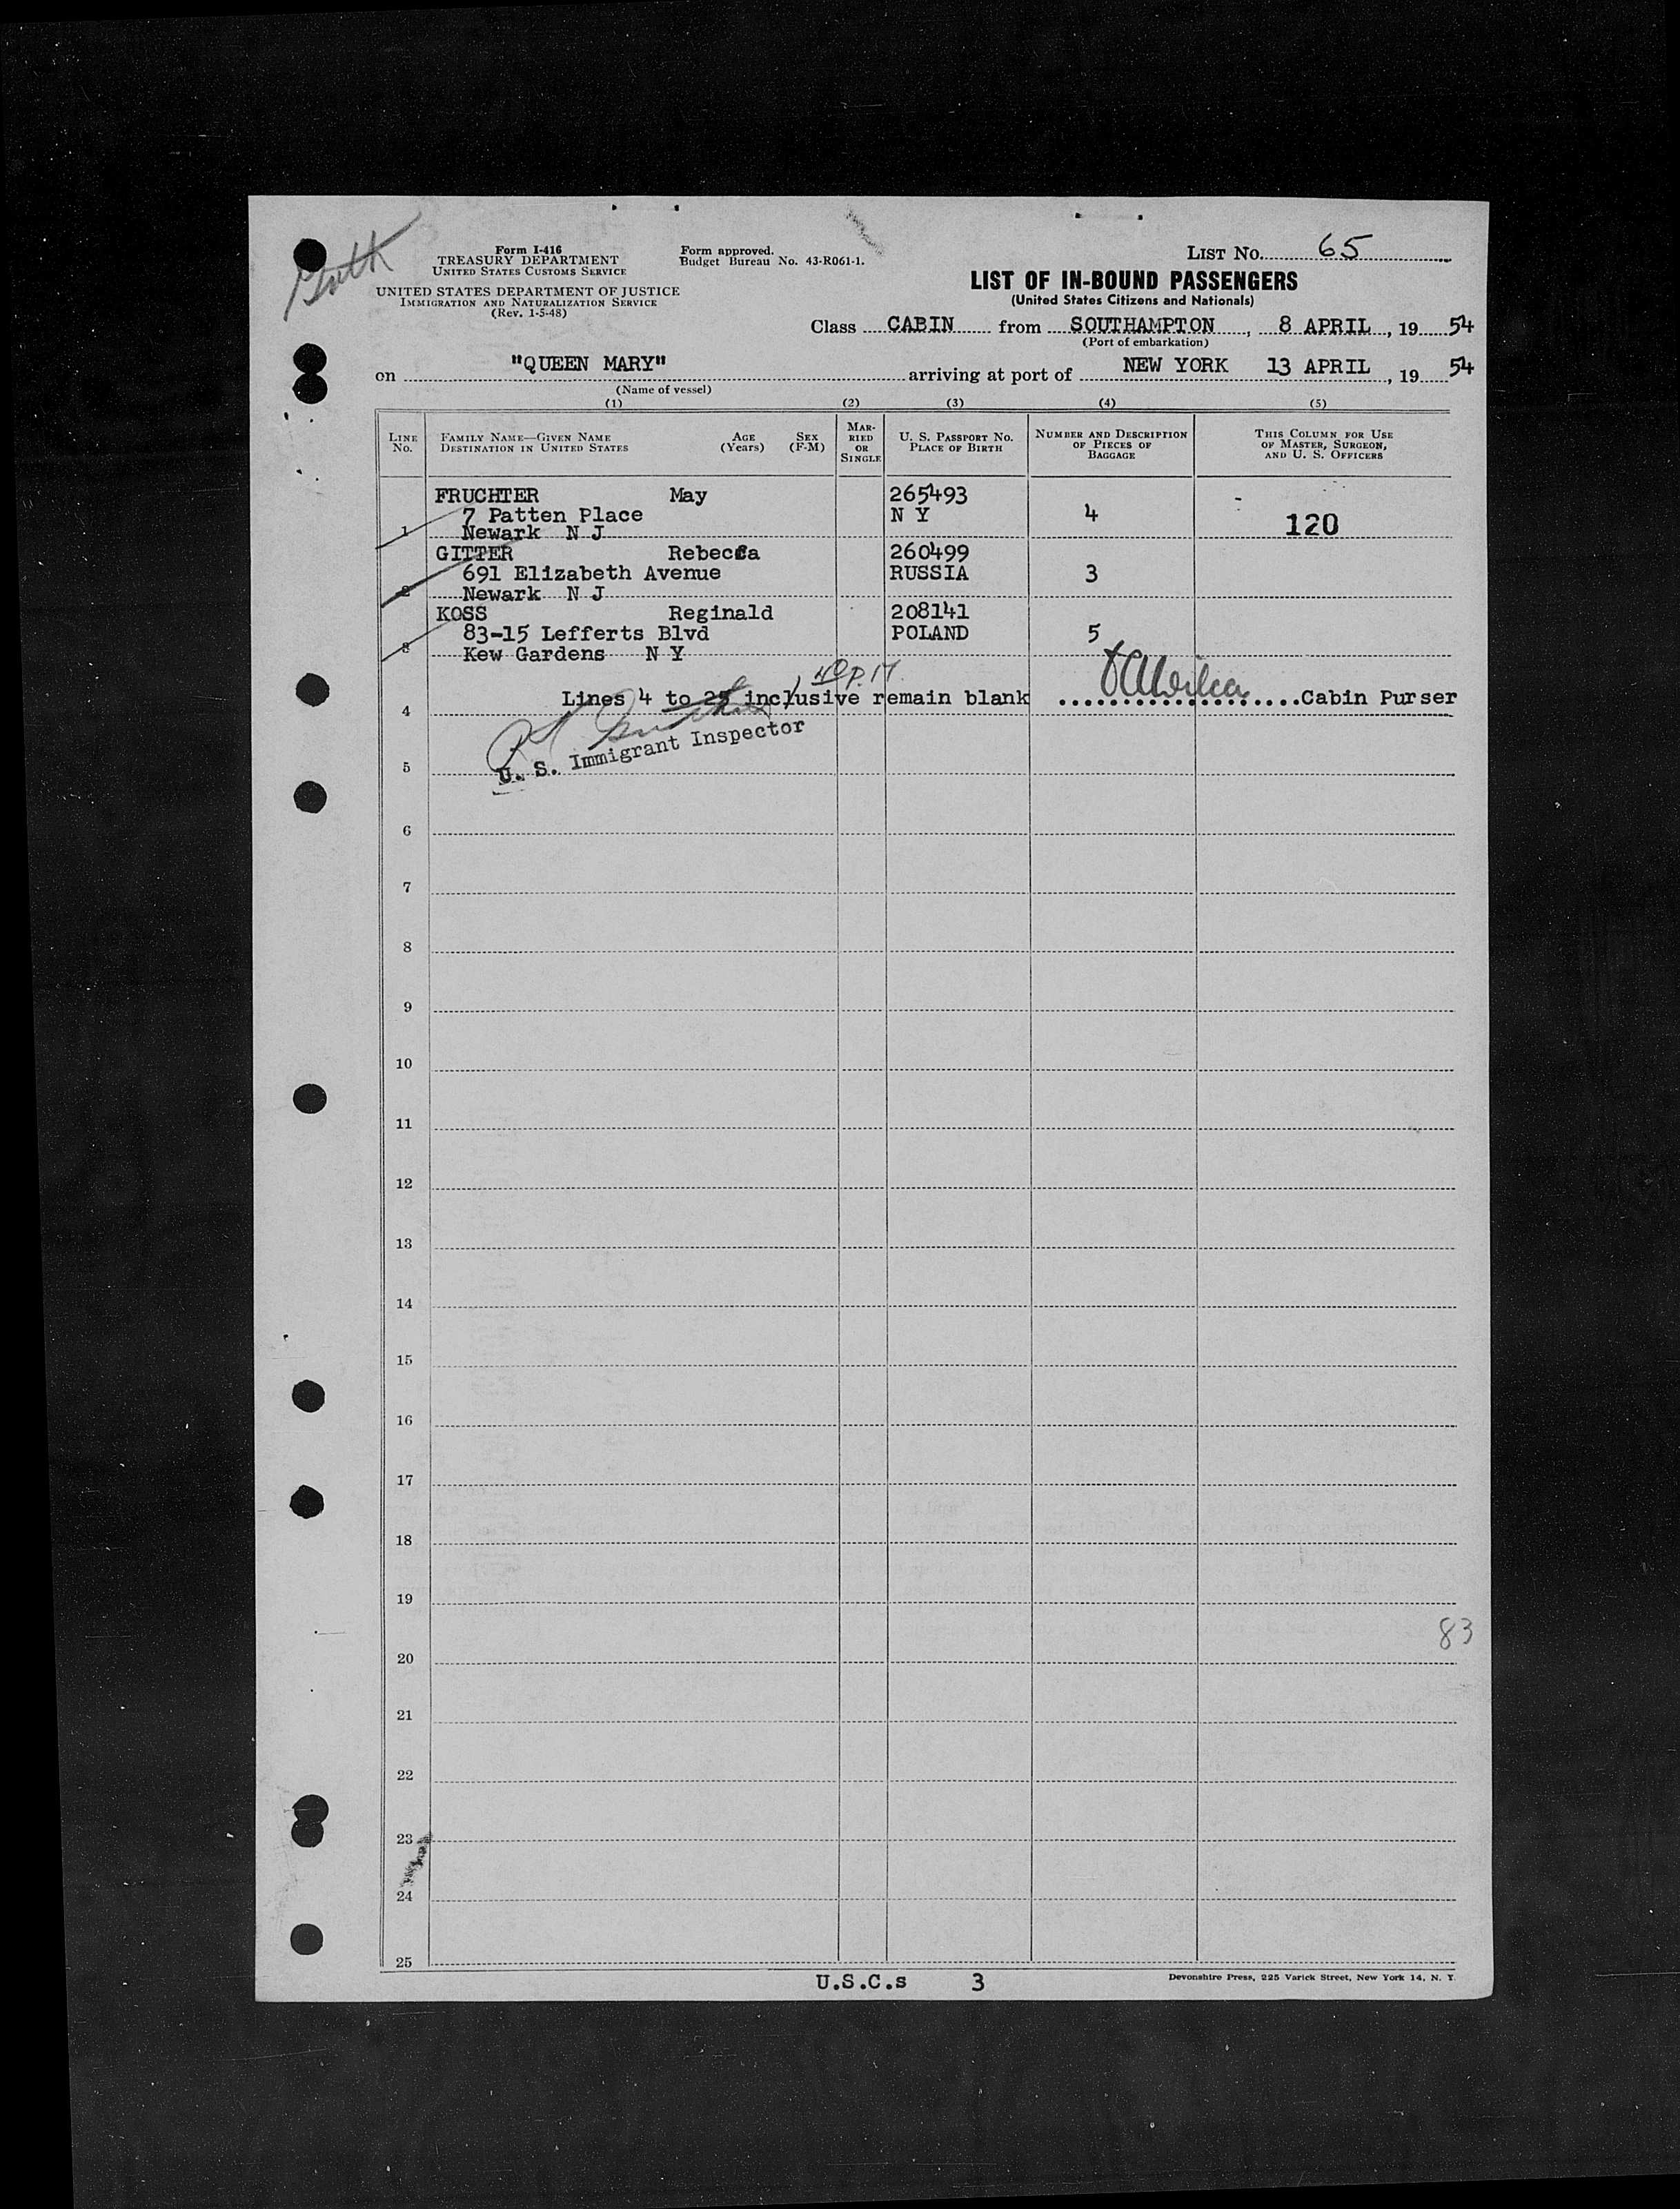 Form I-416
TREASURY DEPARTMENT
UNITED STATES CUSTOMS SERVICE
UNITED STATES DEPARTMENT OF JUSTICE
IMMIGRATION AND NATURALIZATION SERVICE
(Rev. 1-5-48)
Form approved.
Budget Bureau No. 43-R061-1.
LIST No. 65
LIST OF IN-BOUND PASSENGERS
(United States Citizens and Nationals)
Class CABIN from SOUTHAMPTON, 8 APRIL, 19 54
(Port of embarkation)
on "QUEEN MARY" arriving at port of NEW YORK 13 APRIL, 19 54
(Name of vessel)
(1) (2) (3) (4) (5)
LINE No. FAMILY NAME—GIVEN NAME DESTINATION IN UNITED STATES AGE (Years) SEX (F-M) MARRIED OR SINGLE U. S. PASSPORT No. PLACE OF BIRTH NUMBER AND DESCRIPTION OF PIECES OF BAGGAGE THIS COLUMN FOR USE OF MASTER, SURGEON, AND U. S. OFFICERS
FRUCHTER May 265493
7 Patten Place N Y 4 120
1 Newark N J
GITTER Rebecca 260499
691 Elizabeth Avenue RUSSIA 3
2 Newark N J
KOSS Reginald 208141
83-15 Lefferts Blvd POLAND 5
3 Kew Gardens N Y
Lines 4 to 25 inclusive remain blank ....................Cabin Purser
4
U. S. Immigrant Inspector
5
6
7
8
9
10
11
12
13
14
15
16
17
18
19
83
20
21
22
23
24
25
U.S.C.s 3
Devonshire Press, 225 Varick Street, New York 14, N. Y.